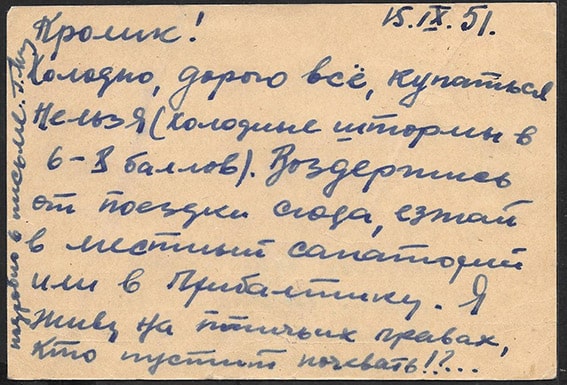 15.IX.51.
Кролик!
Холодно, дорого всё, купаться
нельзя (холодные штормы в
6-8 баллов). Воздержись
от поездки сюда, езжай
в местный санаторий
или в Прибалтику. Я
живу на птичьих правах,
кто пустит ночевать!?...
подробно в письме.